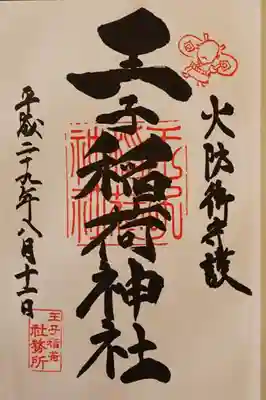 火防御守護
王子稲荷神社
平成二十九年八月十一日
王子稲荷
社務所